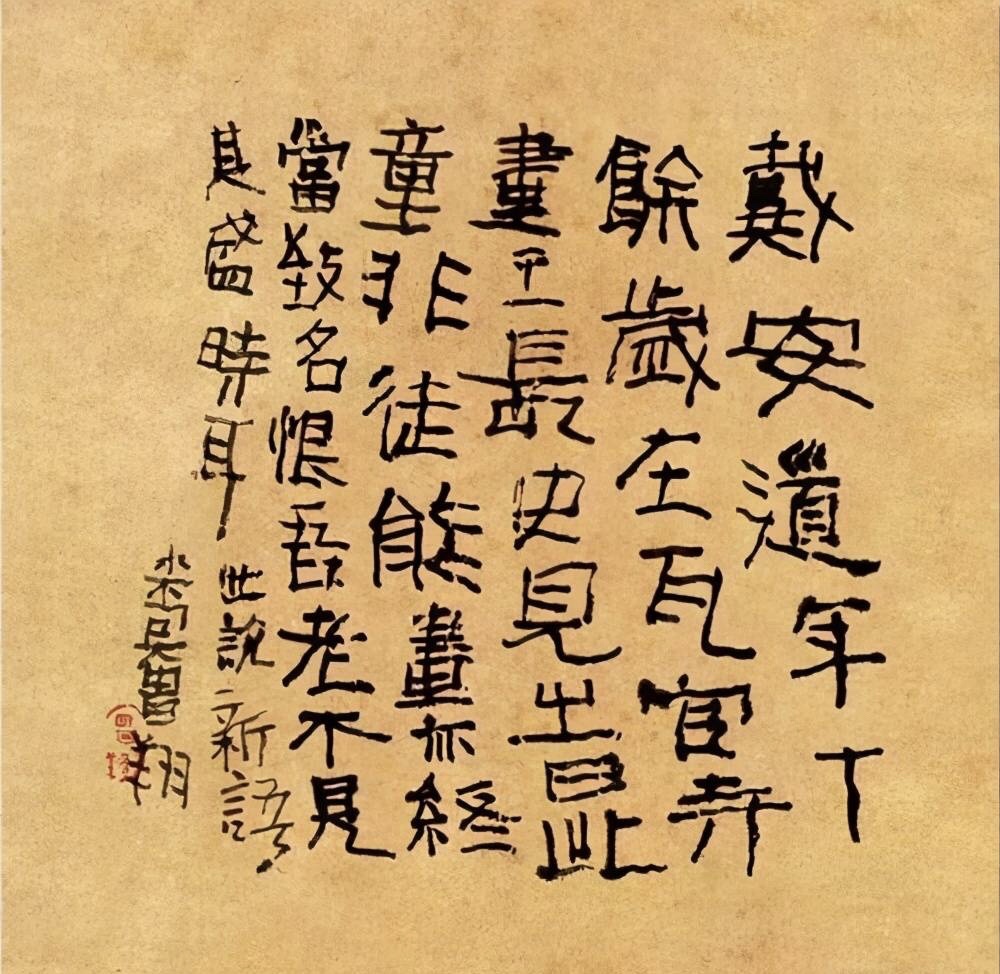 戴安道年十
餘歲在瓦官寺
畫王長史見之曰此
童非徒能畫亦終
當致名恨吾老不見
其盛時耳 世說新語
曾翔